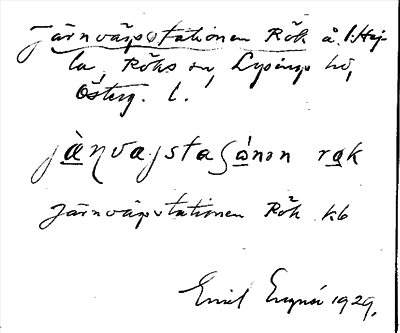 Järnvägsstationen Rök å. l. Hej-
la, Röks sn, Lysings hd,
Österg. l.
jä̱ɳvaʃstaʃo̱nən rø̱k
Järnvägsstationen Rök kb
Emil 1929.